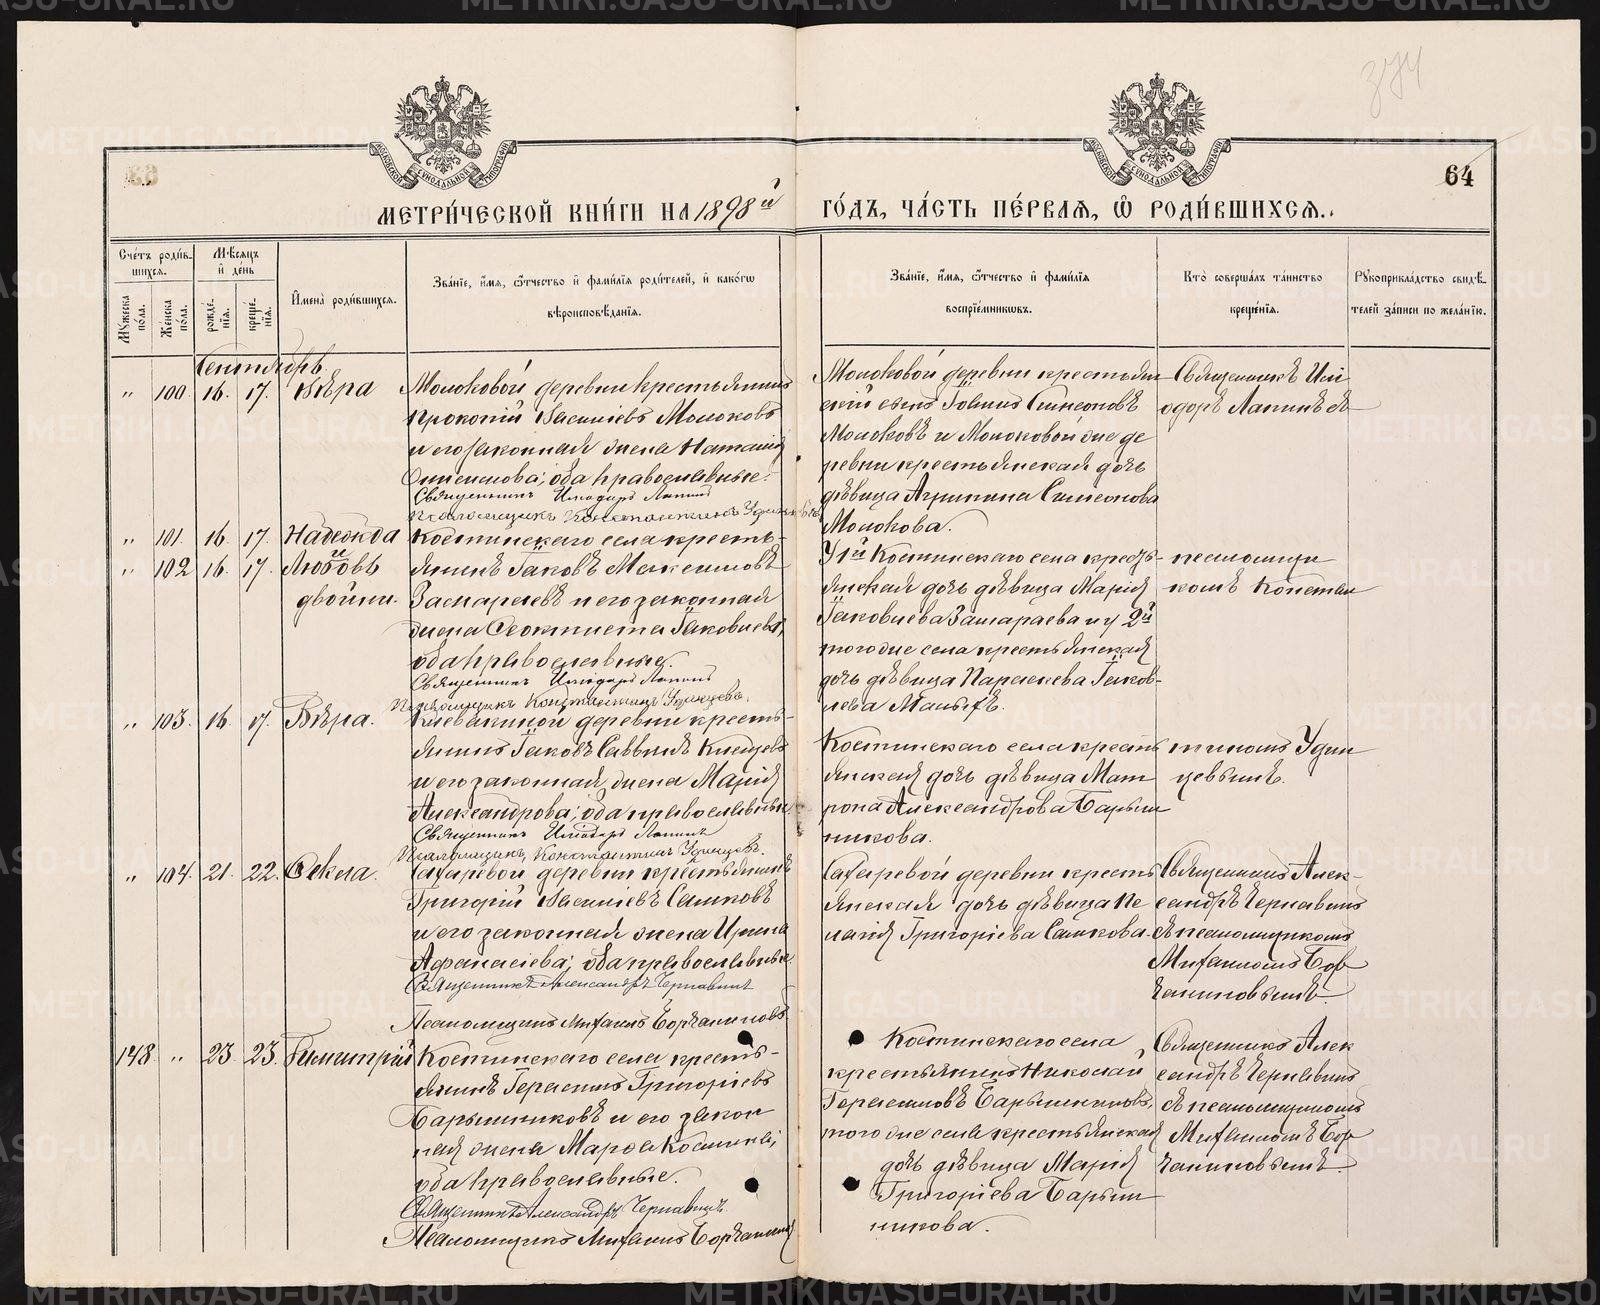 374
64
МЕТРИ́ЧЕСКОЙ КНИ́ГИ НА 1898й
ГО́ДЪ, ЧА́СТЬ ПЕ́РВАЯ, Ѡ҆ РОДИ́ВШИХСЯ.
Сче́тъ роди́в-
шихся.
Му́жеска по́ла.
Же́нска по́ла.
Мѣ́сяцъ
и҆ де́нь
рожде́-
нїя.
креще́-
нїя.
И҆мена̀ роди́вшихся.
Зва́нїе, и҆́мя, ѻ҆́тчество и҆ фами́лїя роди́телей, и҆ како́гѡ
вѣроисповѣ́данїя.
Зва́нїе, и҆́мя, ѻ҆́тчество и҆ фами́лїя
воспрїе́мниковъ.
Кто̀ соверша́лъ та́инство
креще́нїя.
Рꙋкоприкла́дство свидѣ́-
телей за́писи по жела́нїю.
Сентябрь
„ 100. 16. 17. Вѣра
Молоковой деревни крестьянинъ
Прокопій Васильевъ Молоковъ
и его законная жена Наталія
Симеонова; оба православные.
Священникъ Илїодоръ Лапинъ
Псаломщикъ Константинъ Удинцевъ
Молоковой деревни крестьян-
скій сынъ Іоаннъ Симеоновъ
Молоковъ и Молоковой же де
ревни крестьянская дочь
дѣвица Агрипина Симеонова
Молокова.
Священникъ Илі
одоръ Лапинъ съ
„ 101. 16. 17. Надежда
и
„ 102 16. 17. Любовь
двойни.
Костинскаго села кресть-
янинъ Іаковъ Максимовъ
Засмараевъ и его законная
жена Феоктиста Іаковлева,
оба православные.
Священникъ Илїодоръ Лапинъ
Псаломщикъ Константинъ Удинцевъ.
У 1й Костинскаго села кресть-
янская дочь дѣвица Марія
Іаковлева и у 2й
того же села крестьянская
дочь дѣвица Параскева Іаков-
лева
псаломщи
комъ Констан
„ 103. 16. 17. Вѣра.
деревни кресть-
янинъ Іаковъ Саввинъ
и его законная жена Марія
Александрова; оба православные.
Священникъ Илїодоръ Лапинъ
Псаломщикъ Константинъ Удинцевъ.
Костинскаго села кресть
янская дочь дѣвица Мат
рона Александрова Барыш
никова.
тиномъ Удин
цевымъ.
„ 104. 21. 22. Ѳекла.
деревни крестьянинъ
Григорій Васильевъ Сашковъ
и его законная жена Ирина
Афанасіева; оба православные.
Священникъ Александръ Чернавинъ
Псаломщикъ Михаилъ Борчаниновъ
деревни кресть
янская дочь дѣвица Пе
лагія Григоріева Сашкова.
Священникъ Алек-
сандръ Чернавинъ
съ псаломщикомъ
Михаиломъ Бор
чаниновымъ.
148. „ 23. 23. Димитрій
Костинскаго села кресть-
янинъ Герасимъ Григоріевъ
Барышниковъ и его закон
ная жена Марѳа
оба православные.
Священникъ Александръ Чернавинъ.
Псаломщикъ Михаилъ Борчаниновъ
Костинскаго села
крестьянинъ Николай
Герасимовъ Барышниковъ,
того же села крестьянская
дочь дѣвица Марія
Григоріева Барыш
никова.
Священникъ Алек
сандръ Чернавинъ
съ псаломщикомъ
Михаиломъ Бор
чаниновымъ.